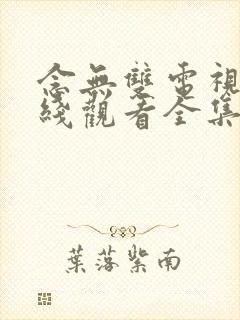 念無雙電視
綫觀看全集
葉落紫南